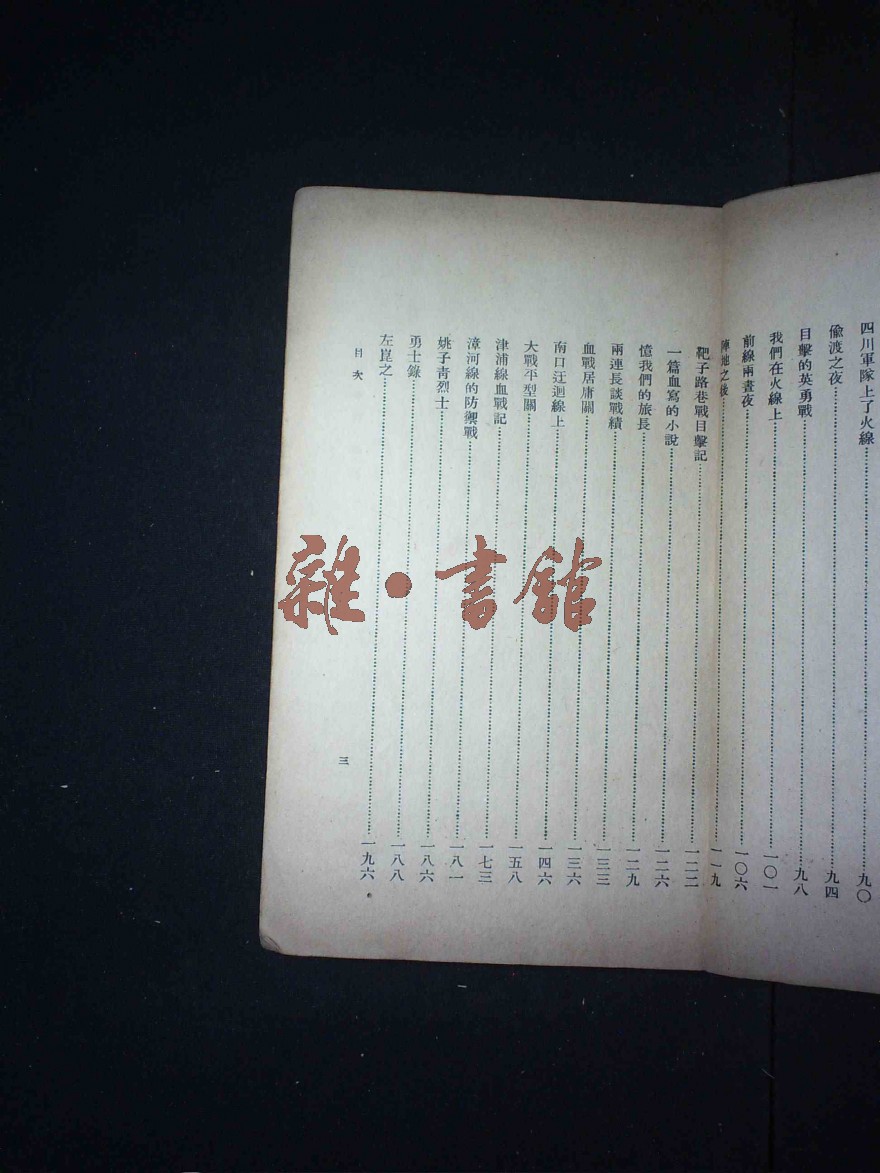 四川軍隊上了火線 九〇
偸渡之夜 九四
目擊的英勇戰 九八
我們在火線上 一〇一
前線兩晝夜 一〇六
陣地之後 一一九
靶子路巷戰目擊記 一二二
一篇血寫的小說 一二六
憶我們的旅長 一二九
兩連長談戰績 一三三
血戰居庸關 一三六
南口迂迴線上 一四六
大戰平型關 一五八
津浦線血戰記 一七三
漳河線的防禦戰 一八一
姚子青烈士 一八六
勇士錄 一八八
左崑之 一九六
目次
三
雜·書館